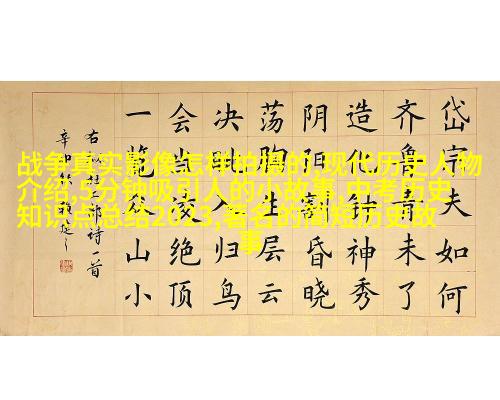 战争真实影像怎样拍摄的,现代历史人物
介绍,5分钟吸引人的小故事,中考历史
知识点总结2023,著名的简短历史故
事
岱宗夫如何
齐鲁青未了
造化钟神秀
阴阳割昏晓
荡胸生层云
决眦入归鸟
会当凌绝顶
一览众山小
右诗一首
辛卯